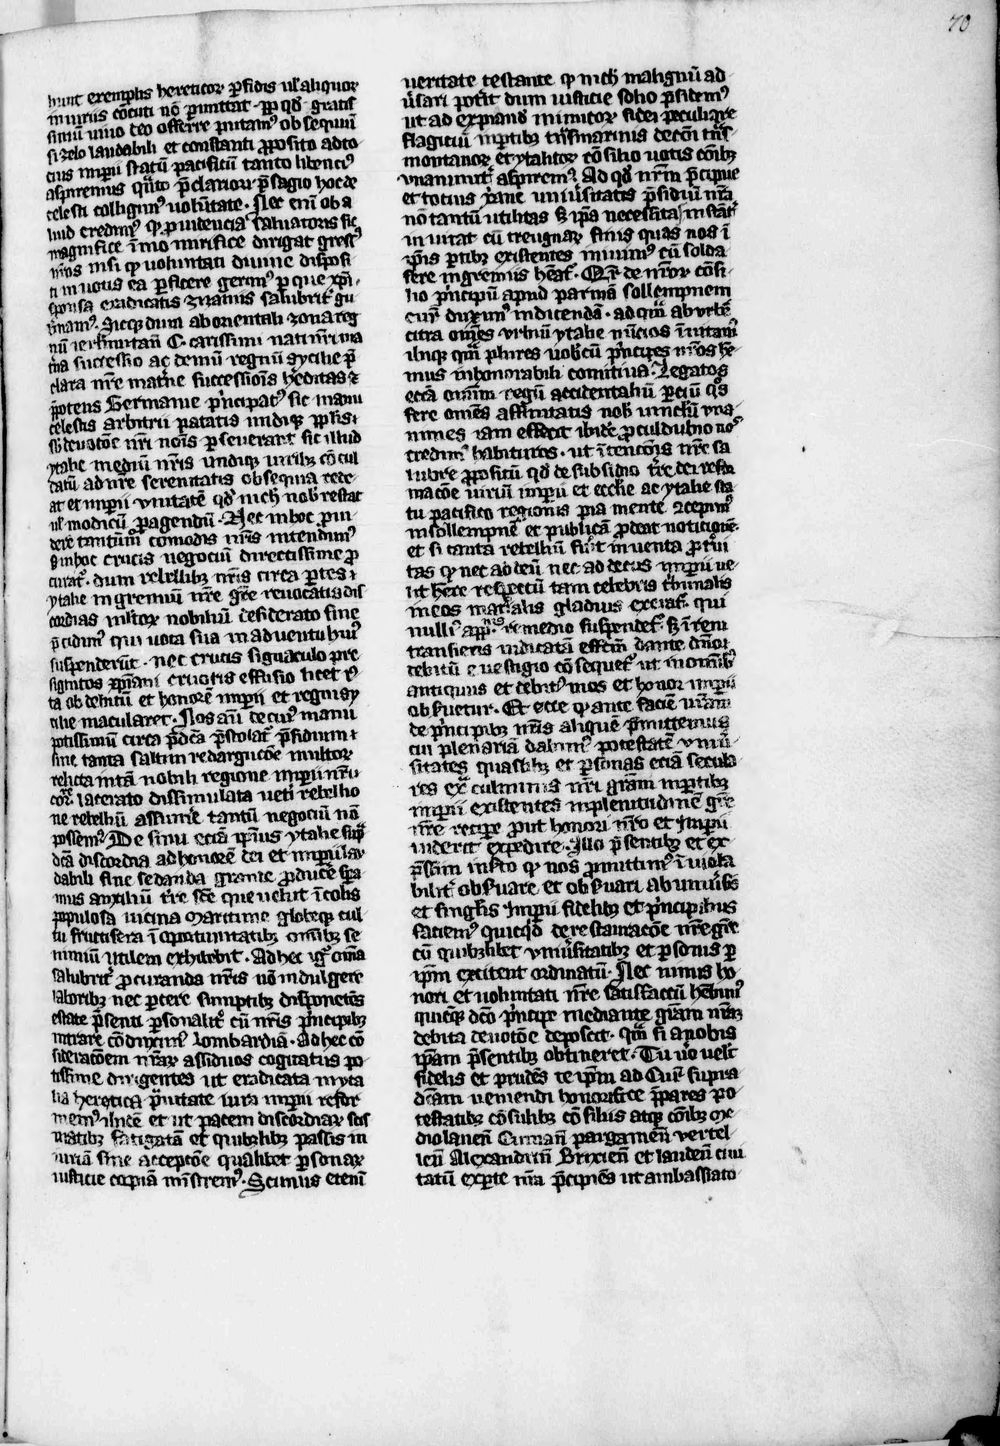 70
hunt exemplis hereticoꝝ ꝑfidis ul' aliquoꝝ
iniuriis cōcuti nō ꝑmittat. ꝓp qd' gratis
simū uiuo deo offerre putam' obsequiū
si zelo laudabili et constanti ꝓposito ad to
cius imꝑii statū pacificū tanto libenci'
aspirem' quāto p̄clarioꝝ p̄sagio hoc de
celesti colligim' uolūtate. Nec eni ob a
liud credim' ꝙ ꝓuidencia saluatoris sic
magnifice īmo mirifice dirigat gress'
nr̄os nisi ꝙ uoluntati diuine disposi
ti in uotis ea ꝑficere
sponsa eradicatis zizaniis salubrit' gu
nam'. Sicqꝫ dum ab orientali zona reg
nū ierl'imitanū C. carissimi nati nr̄i ma
t'na successio ac demū regnū sycilie p̄
clara nr̄e mat'ne successiōis h'editas ⁊
p̄potens Germanie p'ncipat' sic manu
celestis arbitrii patatis undiqꝫ ꝓplis
sb' deuotōe nr̄i nois ꝑseuerant sic illud
ytalie mediū nr̄is undiqꝫ uiribꝫ cōcul
catū ad nr̄e serenitatis obsequia rede
at et imꝑii unitatē qd' nich' nob' restat
ul' modicū ꝑagendū. Nec in hoc ꝓui
dere tantūm' comodis nr̄is intendim'
s' in hoc crucis negociū directissime ꝓ
curat'. dum rebellibꝫ nr̄is circa ꝑtes
ytalie in gremiū nr̄e gr̄e reuocatis dis
cordias inl'toꝝ nobiliū desiderato fine
p̄cidim' qui uota sua in aduentu hui'
suspenderūt. nec crucis signaculo pre
signitos xp̄iani cruoris effusio licet
ta ob debitū et honorē imꝑii et regni sy
cilie macularet. Nos aūt de cui' manu
potissimū circa p̄dc̄a p̄stolat' p̄sidium
sine tanta saltim redargucōe multoꝝ
relicta intā nobili regione imꝑii nr̄i
lacerato dissimulata ueti rebellio
ne rebelliū assume tantū negociū nō
possem'. De sinu eciā ip̄ius ytalie sup̄
dc̄a discordia ad honorē dei et imꝑii lau
dabili fine sedanda grande ꝓducē spa
mus auxiliū t're sc̄e que uelut īcolis
populosa uicina maritime glebeqꝫ cul
tu fructifera ī oportunitatibꝫ omībꝫ se
nimiū utilem exhibebit. Ad hec ig' oīa
salubrit' ꝓcuranda nr̄is nō indulgere
laboribꝫ nec ꝑcere sumptibꝫ disponētes
estate p̄senti ꝑsonalit' cū nr̄is p'ncipibꝫ
intrare cōdixim' lombardiā. Ad hec cō
sideracōem nr̄aꝝ assiduos cogitatus po
tissime dirigentes ut eradicata in yta
lia heretica p̄uitate iura imꝑii refor
mem' et ut pacem discordiaꝝ scis
matibꝫ fatigatā et quibꝫlibꝫ passis in
iuriā sine accepcōe qualibet ꝑsonaꝝ
iusticie copiā mīstrem'. Scimus etenī
ueritate testante ꝙ nich' malignū ad
u'sari potit dum iusticie solio p̄sidem'
ut ad expiand' inimicoꝝ fidei peculiare
flagiciū in ꝑtibus t'nsmarinis de cōn t'ns
montanoꝝ et ytalicoꝝ cōsilio uotis cōibꝫ
unanimit' aspirem'. Ad qd' nr̄m p̄cipue
et totius xp̄iane uniu'sitatis p̄sidiū nr̄a
nō tantū utilitas s' ip̄a necessita' instāt'
in uitat cū treugnaꝝ finis quas nos ī
ip̄is ꝑtibꝫ existentes inium' cū solda
fere ingremus heat'. Qr̄ de nr̄oꝝ cōsi
lio p'ncipū apud parmā sollempnem
cur' duxim' indicendā. ad quā ab urbē
citra oīnes urbiū ytalie nūcios ī uitam'
ilicqꝫ quā plures uob'cū p'ncipes nr̄os h'e
mus in honorabili comitiua. Legatos
eciā oīnium regū occidentaliū ꝑciū qd'
fere omēs affinitatis nob' uinclm' una
nimes iam effecit ibidē ꝓculdubio no'
credim' habituros. ut ītencōnis nr̄e sa
lubre ꝓpositū qd' de subsidio t're dei refor
macōe uiriū imꝑii et ecclie ac ytalie sta
tu pacifico regionis pia mente ⁊cepim'
in sollempnē et publicā ꝓdeat noticionē.
et si tanta rebelliū fu'it inuenta ꝓt'ui
tas ꝙ nec ad deū nec ad decus imꝑii ue
lit h'ere respectū tam celebris t'bunalis
in eos marcialis gladius exciat'. qui
nulli' app'nis remedio suspendet'. s' ī rem
transieris iudicatā effc̄m dante dn̄or
debitū e uestigio cōsequet' ut in omībꝫ
antiquus et debit' mos et honor imꝑii
obs'uetur. Et ecce ꝙ ante faciē ur̄am
de p'ncipibꝫ nr̄is aliquē p̄mittemus
cui plenariā dabim' potestatē uniu'
sitates quaslibꝫ et ꝑsonas eciā secula
res ex' culminis nr̄i gr̄am in ꝑtibꝫ
imꝑii existentes in plenitudinē gr̄e
nr̄e recipe ꝓut honori nr̄o et imꝑii
uiderit expedire. Illo p̄sentibꝫ et ex
p̄ssim iniūcto ꝙ nos ꝓmittim' ī uiola
bilit' obs'uare et obs'uari ab uniu'sis
et singl'is imꝑii fidelibꝫ et p'ncipibus
faciem' quicqd' de restauracōe nr̄e gr̄e
cū quibꝫlibet uniu'sitatibꝫ et ꝑsonis ꝑ
ip̄m extitent ordinatū. Nec minus ho
nori et uoluntati nr̄e satisfactū h'ebim'
quicqꝫ dc̄o p'ncipe mediante gr̄am nr̄aꝫ
debita deuotōe deposcit. quā si a nobis
ip̄am p̄sentibꝫ obtineret. Tu u'o uelut
fidelis et prudēs te ip̄m ad Cur' supra
dc̄am ueniendi honorifice p̄pares po
testatibꝫ cōsulibꝫ cōsiliis atqꝫ cōībꝫ me
diolanen̄ Cuman̄ pargamen̄ vercel
len̄ Alexandrin̄ Brixien̄ et lauden̄ ciui
tatū ex ꝑte nr̄a p̄cipiēs ut ambassiato